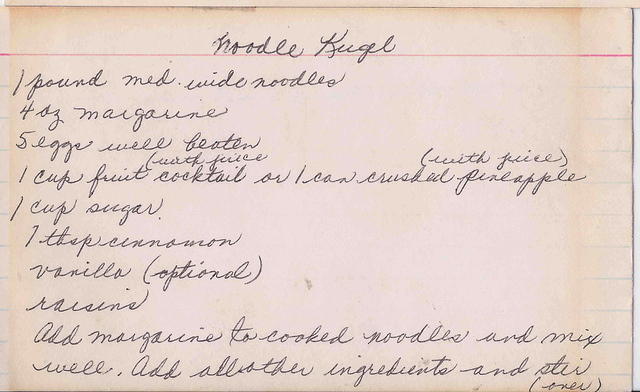 Noodle Kugel
1 pound med. wide noodles
4 oz margarine
5 eggs well beaten
(with juice (with juice)
1 cup fruit cocktail or 1 can crushed pineapple
1 cup sugar
1 tbsp cinnamon
vanilla (optional)
raisins
Add margarine to cooked noodles and mix
well. Add all other ingredients and stir
(over)